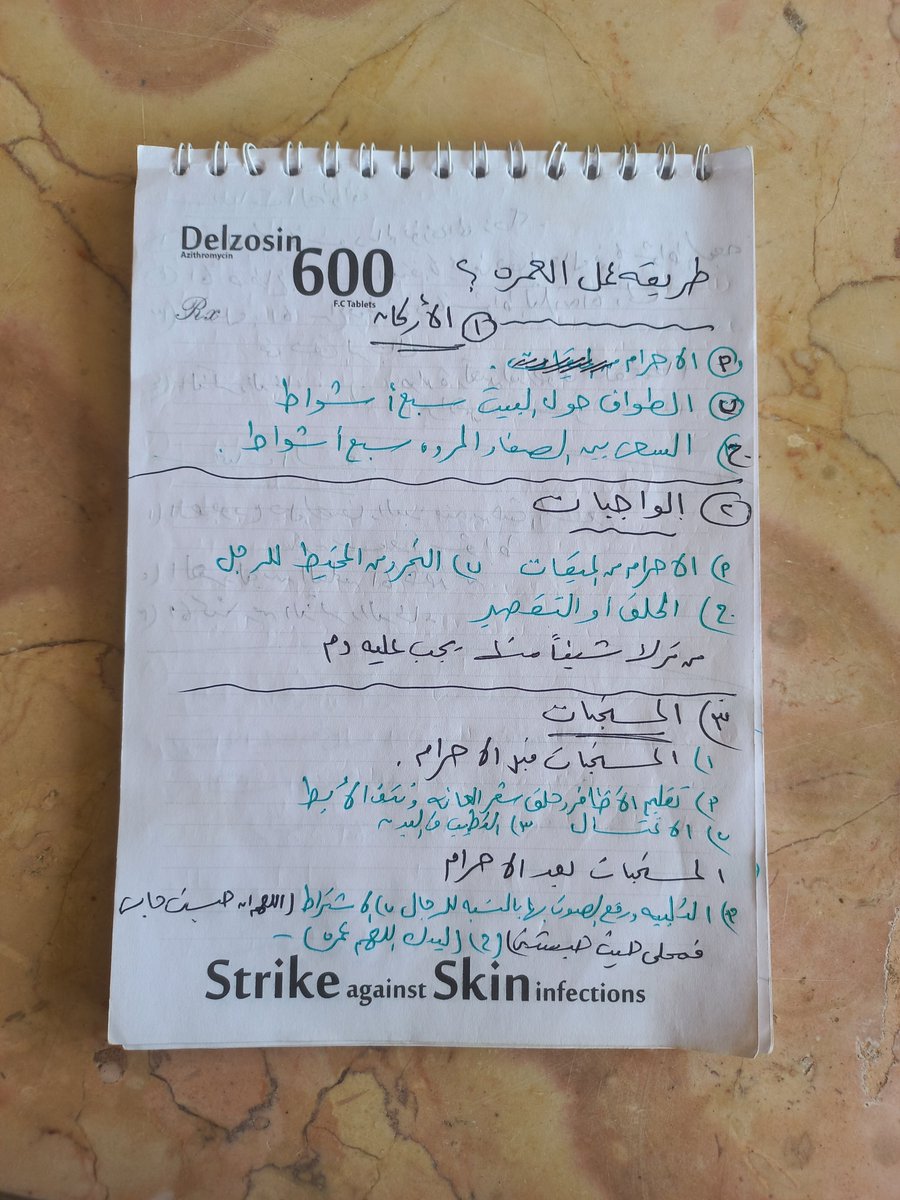 Delzosin
Azithromycin
600
F.C Tablets
Rx
طريقه عمل العمره ؟
١ الأركان
أ الاحرام .
ب الطواف حول البيت سبع أشواط
ج) السعى بين الصفا و المروه سبع أشواط .
٢ الواجبات
أ) الاحرام من الميقات ب) التجرد من المخيط للرجل
ج) الحلق او التقصير
من ترك شيئاً منها يجب عليه دم
٣) المستحبات
١) المستحبات قبل الاحرام .
أ) تقليم الأظافر وحلق شعر العانه ونتف الأبط
ب) الاغتسال ٣) التطيب فى البدن
المستحبات بعد الاحرام
أ) التلبيه ورفع الصوت بها بالنسبه للرجال ب) الاشتراط (اللهم ان حبسنى حابس
فمحلى حيث حبستنى) (ج) (لبيك اللهم عمره) -
Strike against Skin infections